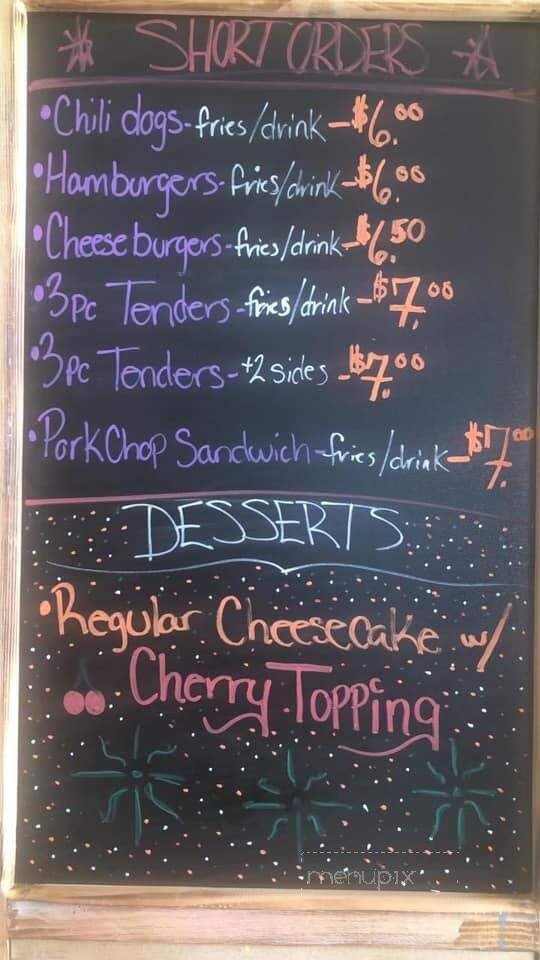 SHORT ORDERS
•Chili dogs-fries/drink-$6.00
•Hamburgers-fries/drink-$6.00
•Cheese burgers-fries/drink-$6.50
•3pc Tenders-fries/drink-$7.00
•3pc Tenders-+2 sides-$7.00
•Pork Chop Sandwich-fries/drink-$7.00
DESSERTS
•Regular Cheesecake w/
Cherry Topping
menupix